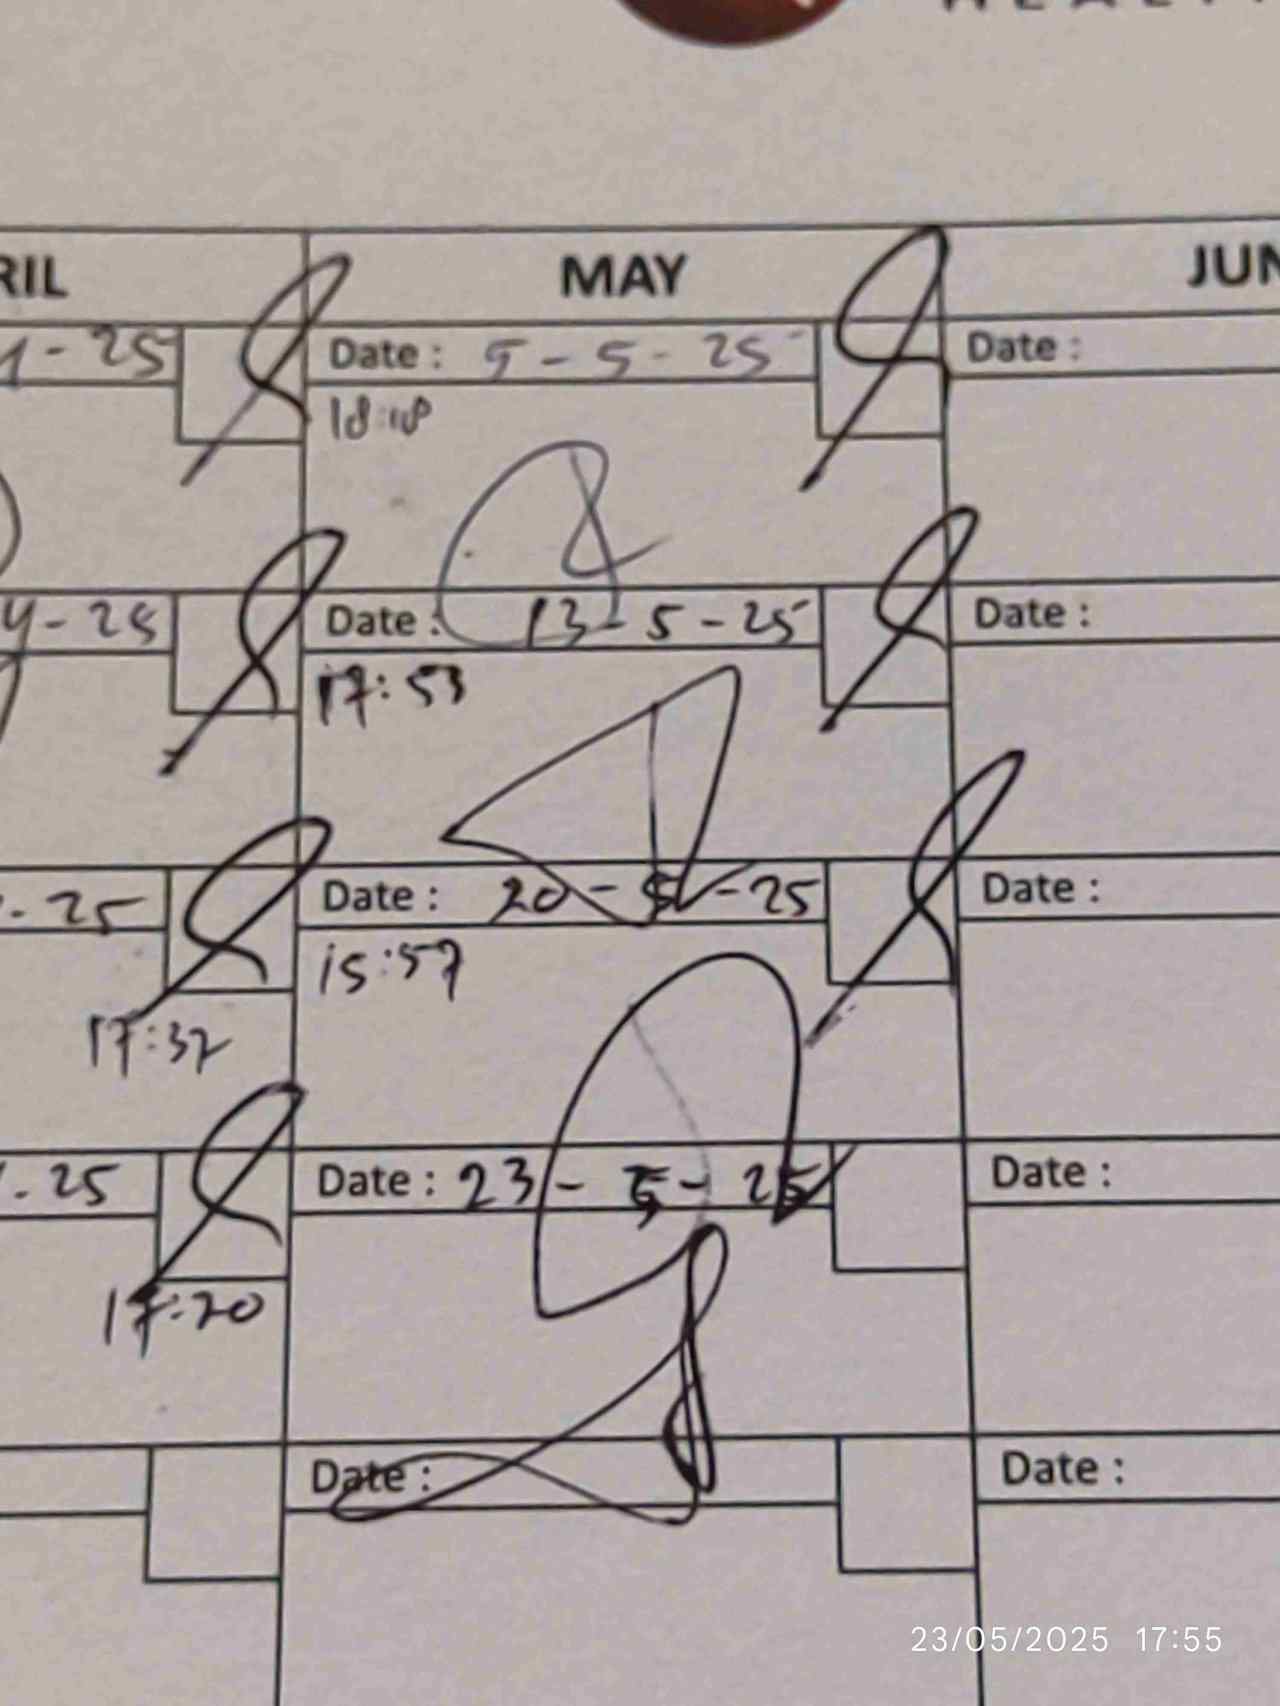 RIL MAY JUN
- 25 Date : 5 - 5 - 25 Date :
18:18
4 - 25 Date : 13 - 5 - 25 Date :
17:53
- 25 Date : 20 - 5 - 25 Date :
15:57
17:37
- 25 Date : 23 - 5 - 25 Date :
17:20
Date : Date :
23/05/2025 17:55